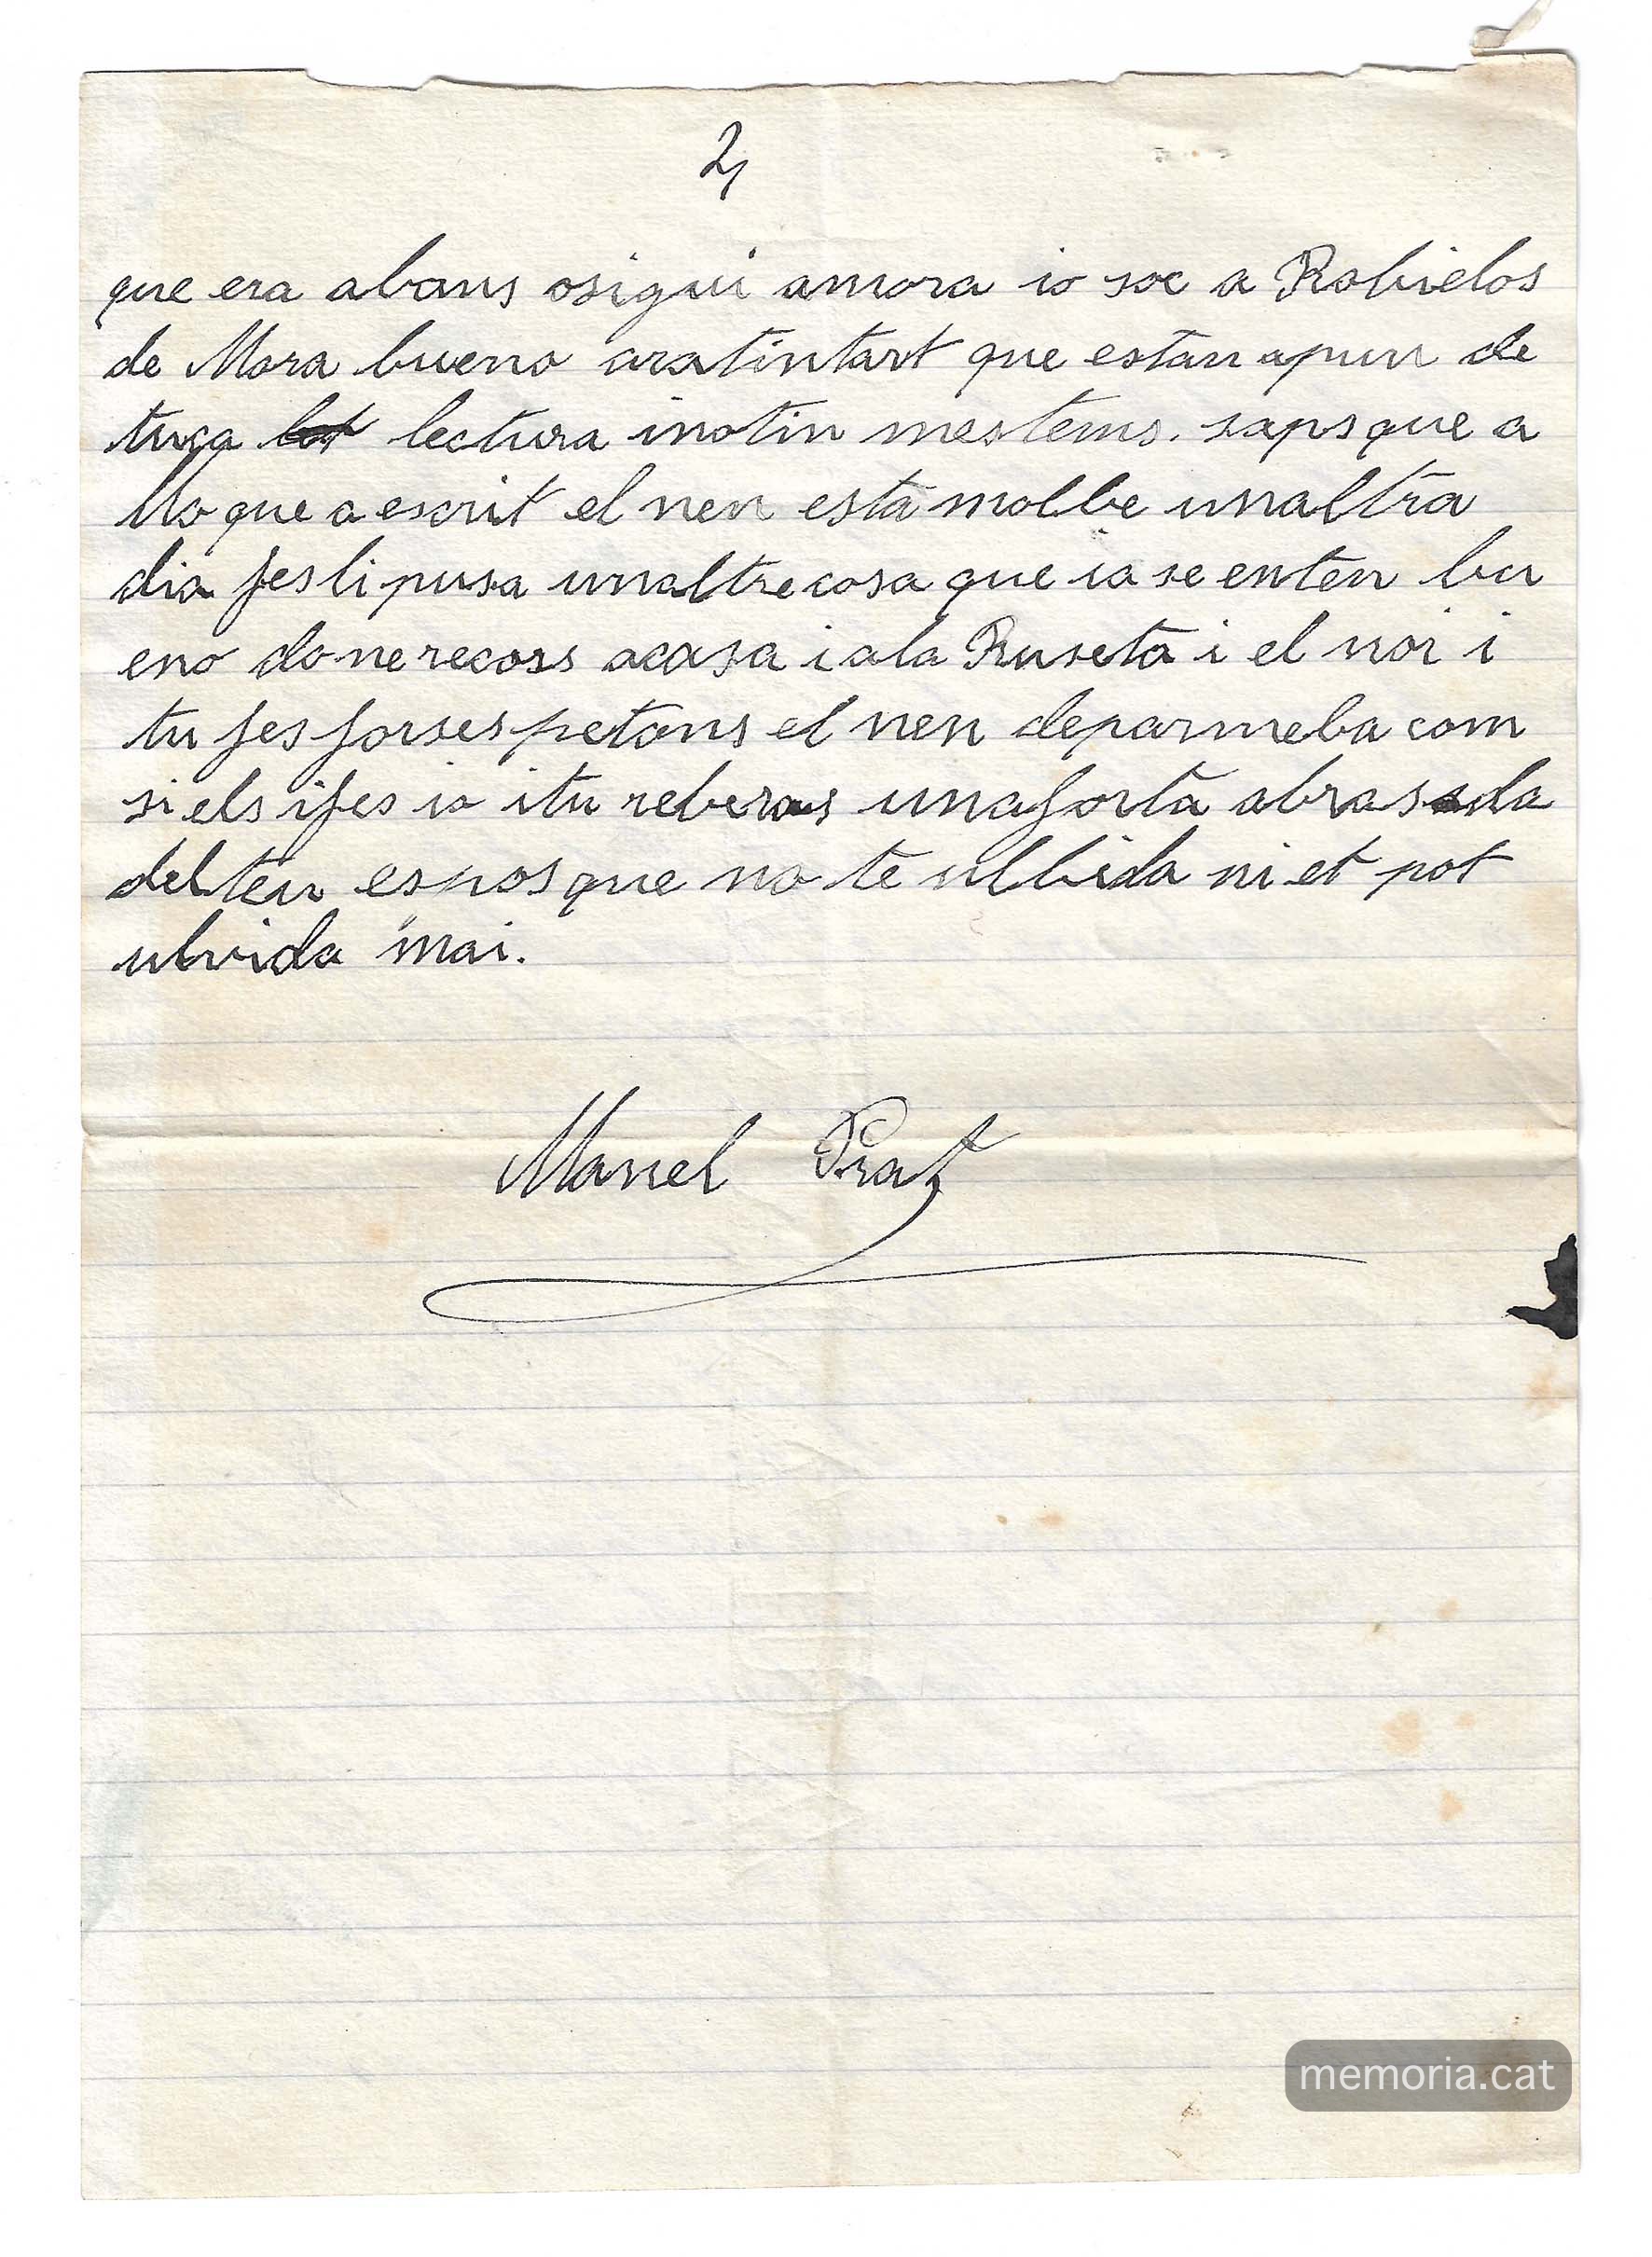 2
que era abans osigui amora io soc a Robielos
de Mora bueno aratintart que estan apun de
tuca lectura inotin mestems. sapsque a
llo que a escrit el nen esta molbe unaltra
dia fesli pusa unaltre cosa que ia se enten bu
eno donerecors acasa i ala Ruseta i el noi i
tu fes forses petons el nen deparmeba com
si els ifes io itu reberas unaforta abrasada
delteu espos que no te ulbida ni et pot
ulvida mai.
Manel Prat
memoria.cat